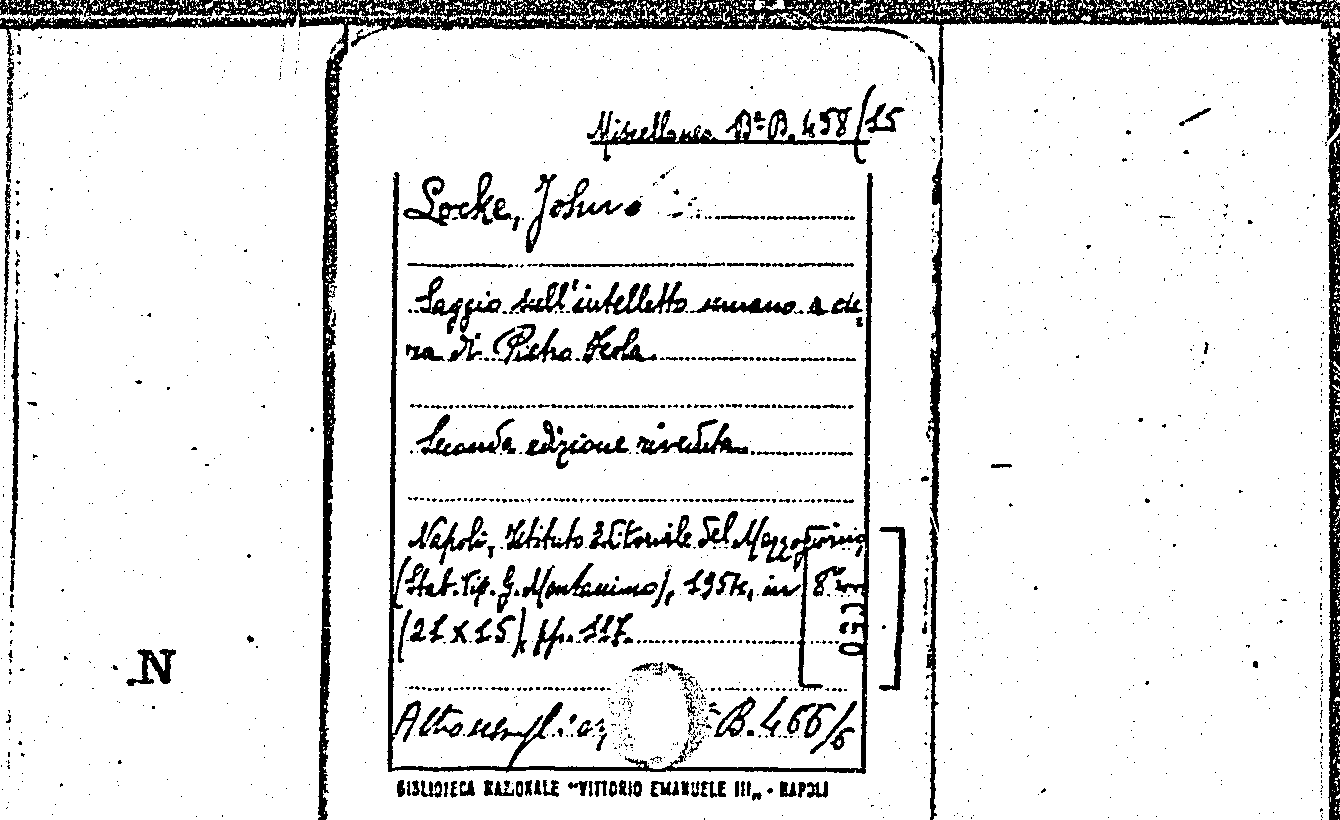 Miscellanea Bª B. 458/15
Locke, John
Saggio sull'intelletto umano a cu
ra di Pietro Isola.
Seconda edizione riveduta.
Napoli, Istituto Editoriale del Mezzogiorno
(Stab. Tip. G. Montanino), in 8º
(21 x 15), pp. 117.
B. 466/6
N
BIBLIOTECA NAZIONALE "VITTORIO EMANUELE III„ - NAPOLI